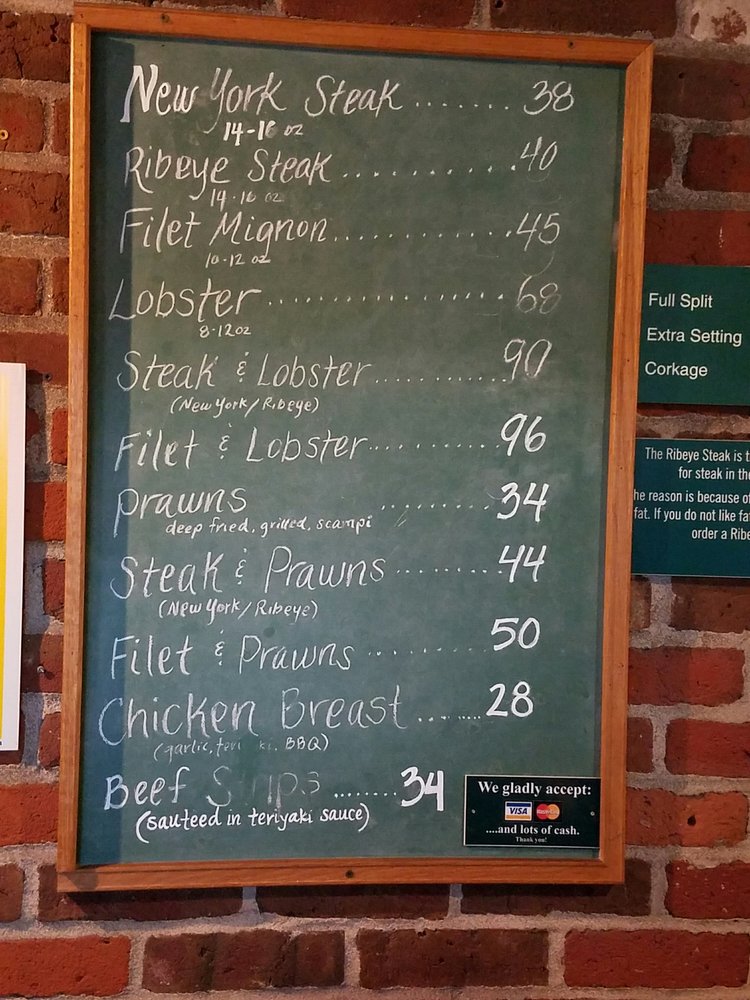 New York Steak ....... 38
14-16 oz
Ribeye Steak ............. 40
14-16 oz
Filet Mignon .............. 45
10-12 oz
Lobster .................... 68
8-12oz
Steak & Lobster ........... 90
(New York/Ribeye)
Filet & Lobster ............ 96
prawns ............ 34
deep fried, grilled, scampi
Steak & Prawns .......... 44
(New York/Ribeye)
Filet & Prawns ............ 50
Chicken Breast ......... 28
(garlic, teri ki, BBQ)
Beef S ips ........ 34
(sauteed in teriyaki sauce)
We gladly accept:
VISA MasterCard
....and lots of cash.
Thank you!
Full Split
Extra Setting
Corkage
The Ribeye Steak is t
for steak in the
he reason is because of
fat. If you do not like fa
order a Ribe